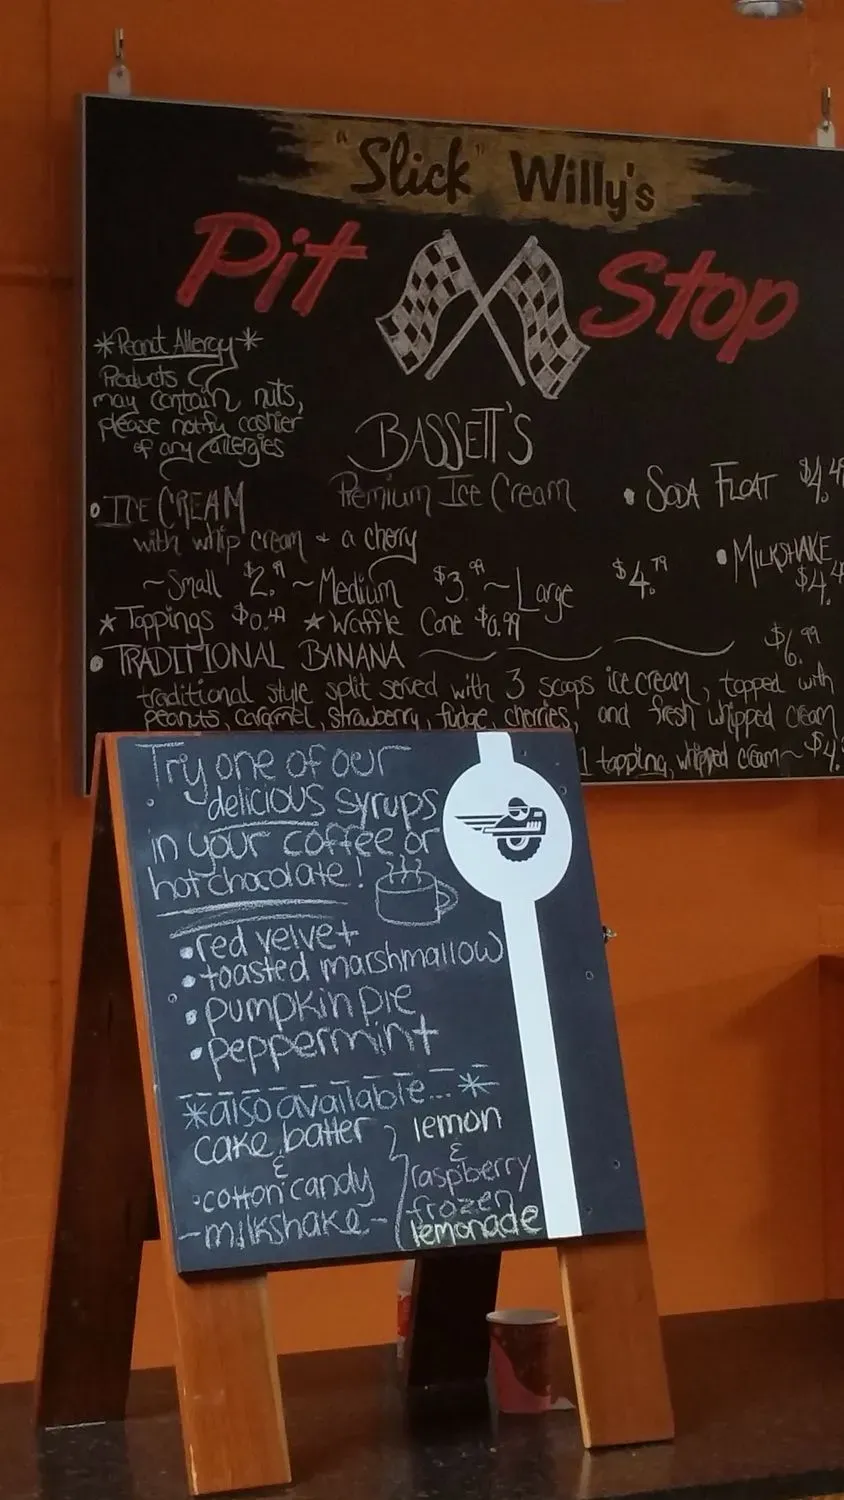 "Slick" Willy's
Pit Stop
*Peanut Allergy*
Products
may contain nuts,
please notify cashier
of any allergies
BASSETT'S
Premium Ice Cream
• ICE CREAM
with whip cream + a cherry
~Small $2.99 ~Medium $3.99 ~Large $4.79
★Toppings $0.49 ★Waffle Cone $0.99
• SODA FLOAT $4.4
• MILKSHAKE
$4.4
• TRADITIONAL BANANA $6.99
traditional style split served with 3 scoops ice cream, topped with
peanuts, caramel, strawberry, fudge, cherries, and fresh whipped cream
topping, whipped cream~ $4.
Try one of our
delicious syrups
in your coffee or
hot chocolate!
• red velvet
• toasted marshmallow
• pumpkin pie
• peppermint
*also available...*
cake batter
&
cotton candy
-milkshake-
lemon
&
raspberry
frozen
lemonade